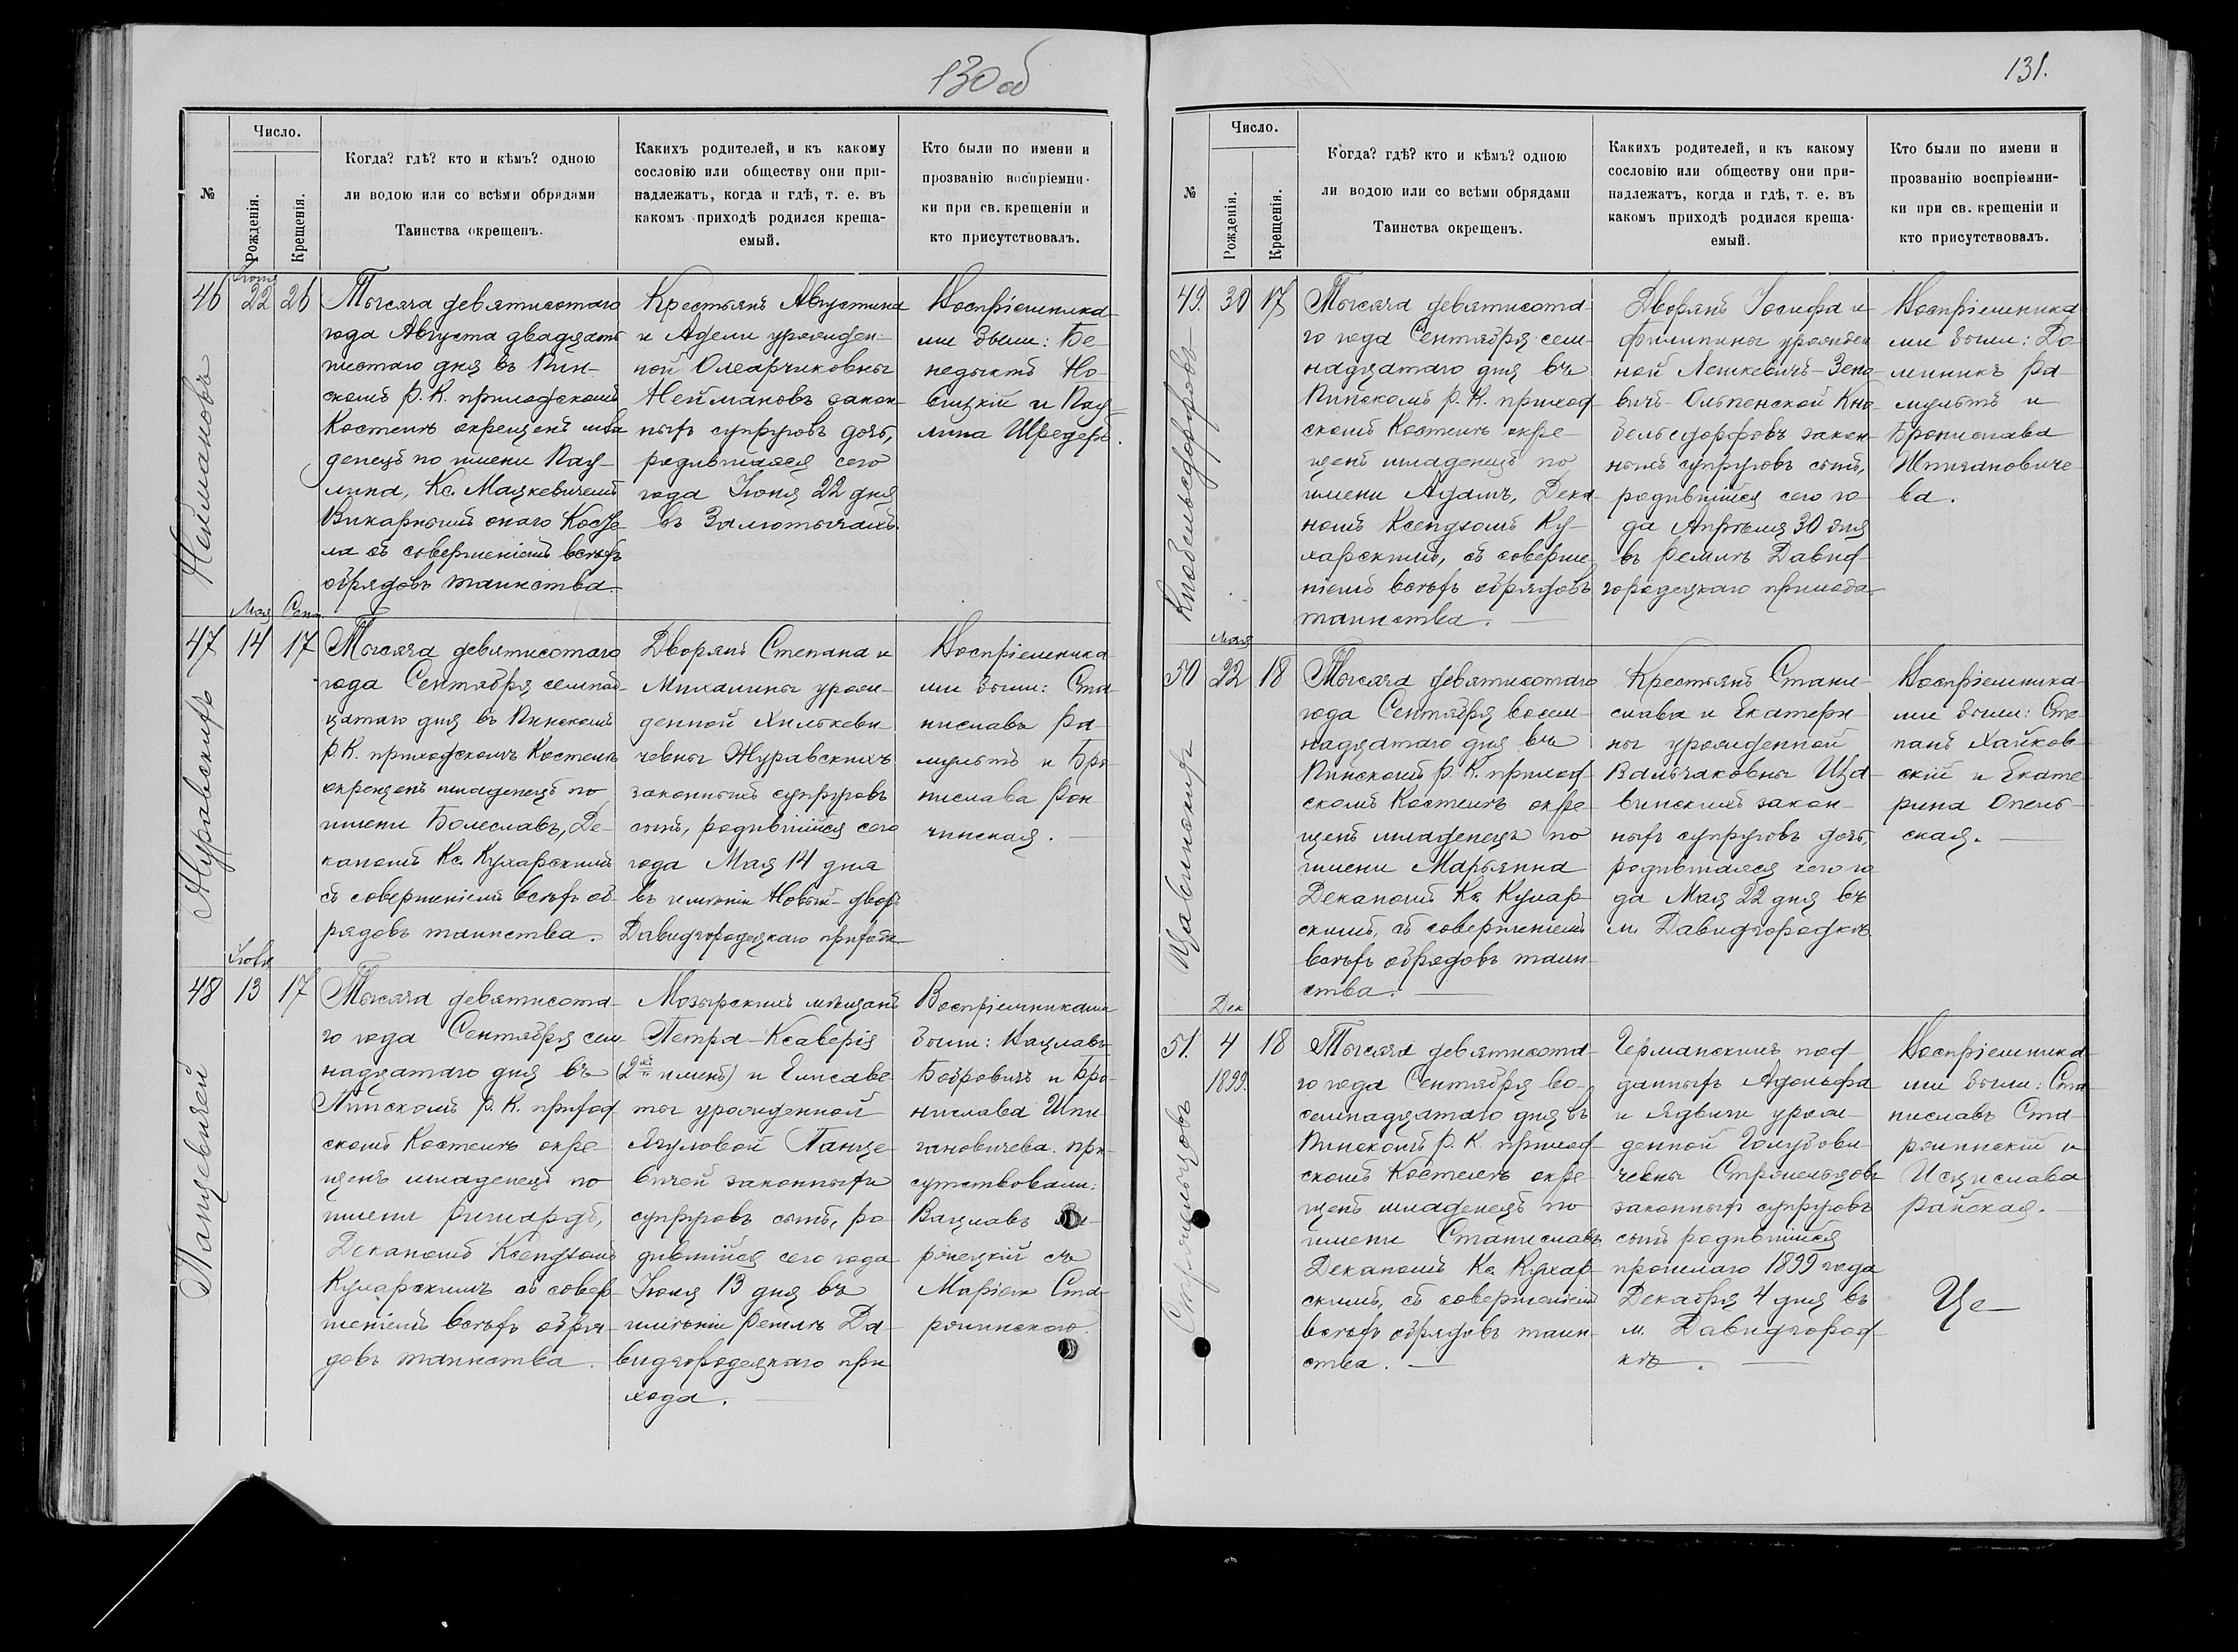 130 об
№
Число.
Рожденія.
Крещенія.
Когда? гдѣ? кто и кѣмъ? одною
ли водою или со всѣми обрядами
Таинства окрещенъ.
Какихъ родителей, и къ какому
сословію или обществу они при-
надлежатъ, когда и гдѣ, т. е. въ
какомъ приходѣ родился креща-
емый.
Кто были по имени и
прозванію воспріемни-
ки при св. крещеніи и
кто присутствовалъ.
Неймановъ
46
22 26
Тысяча девятисотаго
года Августа двадцать
шестаго дня въ Пин-
скомъ Р. К. приходскомъ
Костелѣ окрещенъ мла
денецъ по имени Пау-
лина, Кс. Мацкевичемъ
Викарнымъ онаго Косте
ла съ совершеніемъ всѣхъ
обрядовъ таинства.
Крестьянъ Августина
и Адели урожден-
ной Олеарчиковны
Неймановъ закон-
ныхъ супруговъ дочь,
родившаяся сего
года Іюня 22 дня
въ
Воспріемника-
ми были: Бе-
недыктъ Но-
вицкій и Пау-
лина Шредеръ.
Журавскихъ
Мая Сент.
47 14 17
Тысяча девятисотаго
года Сентября семнад-
цатаго дня въ Пинскомъ
Р. К. приходскомъ Костелѣ
окрещенъ младенецъ по
имени Болеславъ, Де-
каномъ Кс. Кухарскимъ
съ совершеніемъ всѣхъ об-
рядовъ таинства.
Дворянъ Степана и
Михалины урож-
денной Хилькеви
чевны Журавскихъ
законныхъ супруговъ
сынъ, родившійся сего
года Мая 14 дня
въ имѣніи Новый-дворъ
Давидгородецкаго прихода
Воспріемника-
ми были: Ста-
ниславъ Ра-
мультъ и Бро-
нислава Рон
чинская.
Панцевичей
48 13 17
Тысяча девятисота-
го года Сентября сем
надцатаго дня въ
Пинскомъ Р. К. приход-
скомъ Костелѣ окре-
щенъ младенецъ по
имени Ришардъ,
Деканомъ Ксендзомъ
Кухарскимъ съ совер-
шеніемъ всѣхъ обря-
довъ таинства.
Мозырскихъ мѣщанъ
Петра-Ксаверія
(2хъ именъ) и Елисаве-
ты урожденной
Ягуловой Панце-
вичей законныхъ
супруговъ сынъ, ро
дившійся сего года
Іюня 13 дня въ
имѣніи Ремлѣ Да-
видгородецкаго при
хода.
Воспріемниками
были: Вацлавъ
Бобровичъ и Бро-
нислава Шпи-
гановичева. При-
сутствовали:
Вацлавъ
съ
Маріею Ста-
ржинскою.
131.
№
Число.
Рожденія.
Крещенія.
Когда? гдѣ? кто и кѣмъ? одною
ли водою или со всѣми обрядами
Таинства окрещенъ.
Какихъ родителей, и къ какому
сословію или обществу они при-
надлежатъ, когда и гдѣ, т. е. въ
какомъ приходѣ родился креща-
емый.
Кто были по имени и
прозванію воспріемни-
ки при св. крещеніи и
кто присутствовалъ.
Кнобельсдорфовъ
49. 30 17
Тысяча девятисота-
го года Сентября сем-
надцатаго дня въ
Пинскомъ Р. К. приход-
скомъ Костелѣ окре-
щенъ младенецъ по
имени Адамъ, Дека-
номъ Ксендзомъ Ку-
харскимъ, съ соверше
ніемъ всѣхъ обрядовъ
таинства.
Дворянъ Іосифа и
Филипины урожден
ной Лешкевичъ-Зено-
вичъ-Ольпенской Кно-
бельсдорфовъ закон-
ныхъ супруговъ сынъ,
родившійся сего го-
да Апрѣля 30 дня
въ Ремлѣ Давид-
городецкаго прихода
Воспріемника-
ми были: До-
миникъ Ра-
мультъ и
Бронислава
Шпигановиче-
ва.
Щавинския
Мая
50 22 18
Тысяча девятисотаго
года Сентября восем-
надцатаго дня въ
Пинскомъ Р. К. приход-
скомъ Костелѣ окре-
щенъ младенецъ по
имени Марьянна
Деканомъ Кс. Кухар-
скимъ, съ совершеніемъ
всѣхъ обрядовъ таин-
ства.
Крестьянъ Стани-
слава и Екатери-
ны урожденной
Вальчаковны Ща-
винскихъ закон-
ныхъ супруговъ дочь,
родившаяся сего го
да Мая 22 дня въ
м. Давидгородкѣ.
Воспріемника-
ми были: Сте-
панъ Хайков-
скій и Екате-
рина Опель-
ская.
Стржельцовъ
Дек
51. 4 18
1899.
Тысяча девятисота-
го года Сентября во-
семнадцатаго дня въ
Пинскомъ Р. К. приход-
скомъ Костелѣ окре-
щенъ младенецъ по
имени Станиславъ
Деканомъ Кс. Кухар-
скимъ, съ совершеніемъ
всѣхъ обрядовъ таин-
ства.
Германскихъ под-
данныхъ Адольфа
и Ядвиги урож-
денной Голубови-
чевны Стржельцовъ
законныхъ супруговъ
сынъ родившійся
прошлаго 1899 года
Декабря 4 дня въ
м. Давидгород-
кѣ.
Воспріемника-
ми были: Ста-
ниславъ Ста-
ржинскій и
Райская.
Це